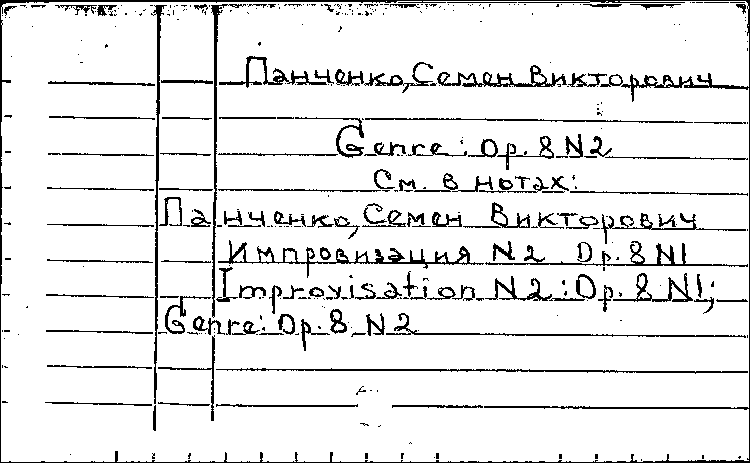 Панченко, Семен Викторович
Genre: Op. 8 N2
См. в нотах:
Панченко, Семен Викторович
Импровизация N2 Op. 8 N1
Improvisation N2: Op. 8 N1;
Genre: Op. 8 N2